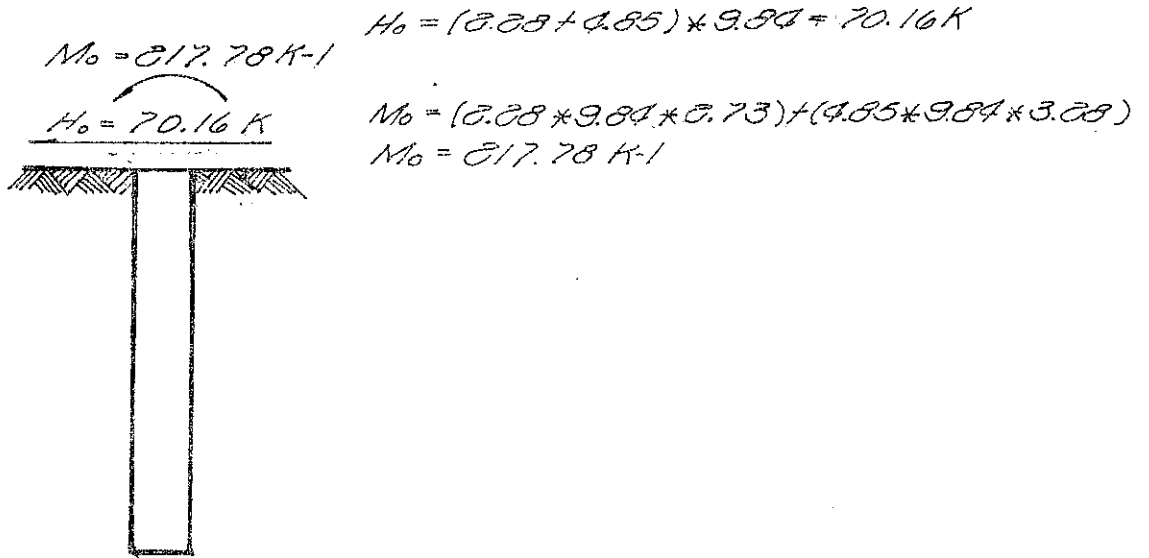 H₀ = (2.28+4.85)*9.84 = 70.16K
M₀ = 217.78 K-1
H₀ = 70.16 K
M₀ = (2.28*9.84*2.73)+(4.85*9.84*3.28)
M₀ = 217.78 K-1